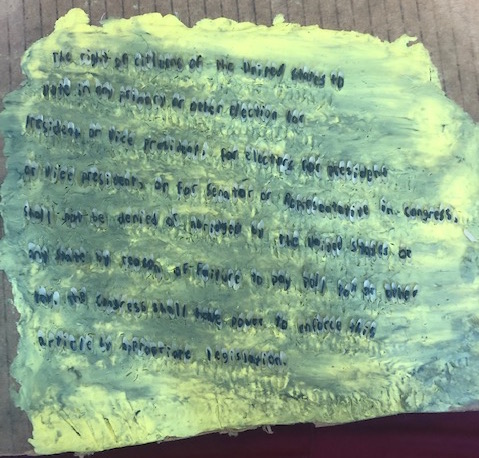 The right of citizens of the United States to
vote in any primary or other election for
President or Vice President, for electors for president
or Vice president, or for Senator or Representative in congress,
shall not be denied or abridged by the United States or
any state by reason of failure to pay poll tax or other
tax. the Congress shall have power to enforce this
article by appropriate legislation.